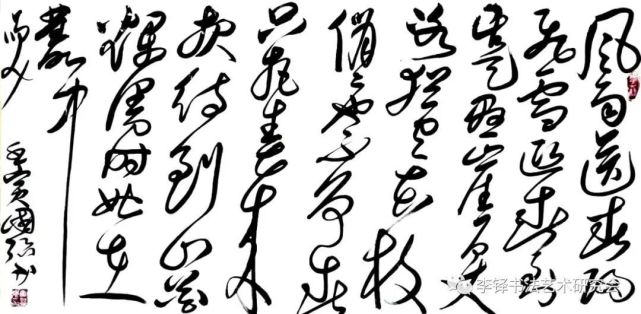 风雨送春归
飞雪迎春到
已是悬崖百丈
冰犹有花枝
俏俏也不争春
只把春来
报待到山花
烂漫时她在
丛中
笑
壬寅
李铎书法艺术研究会